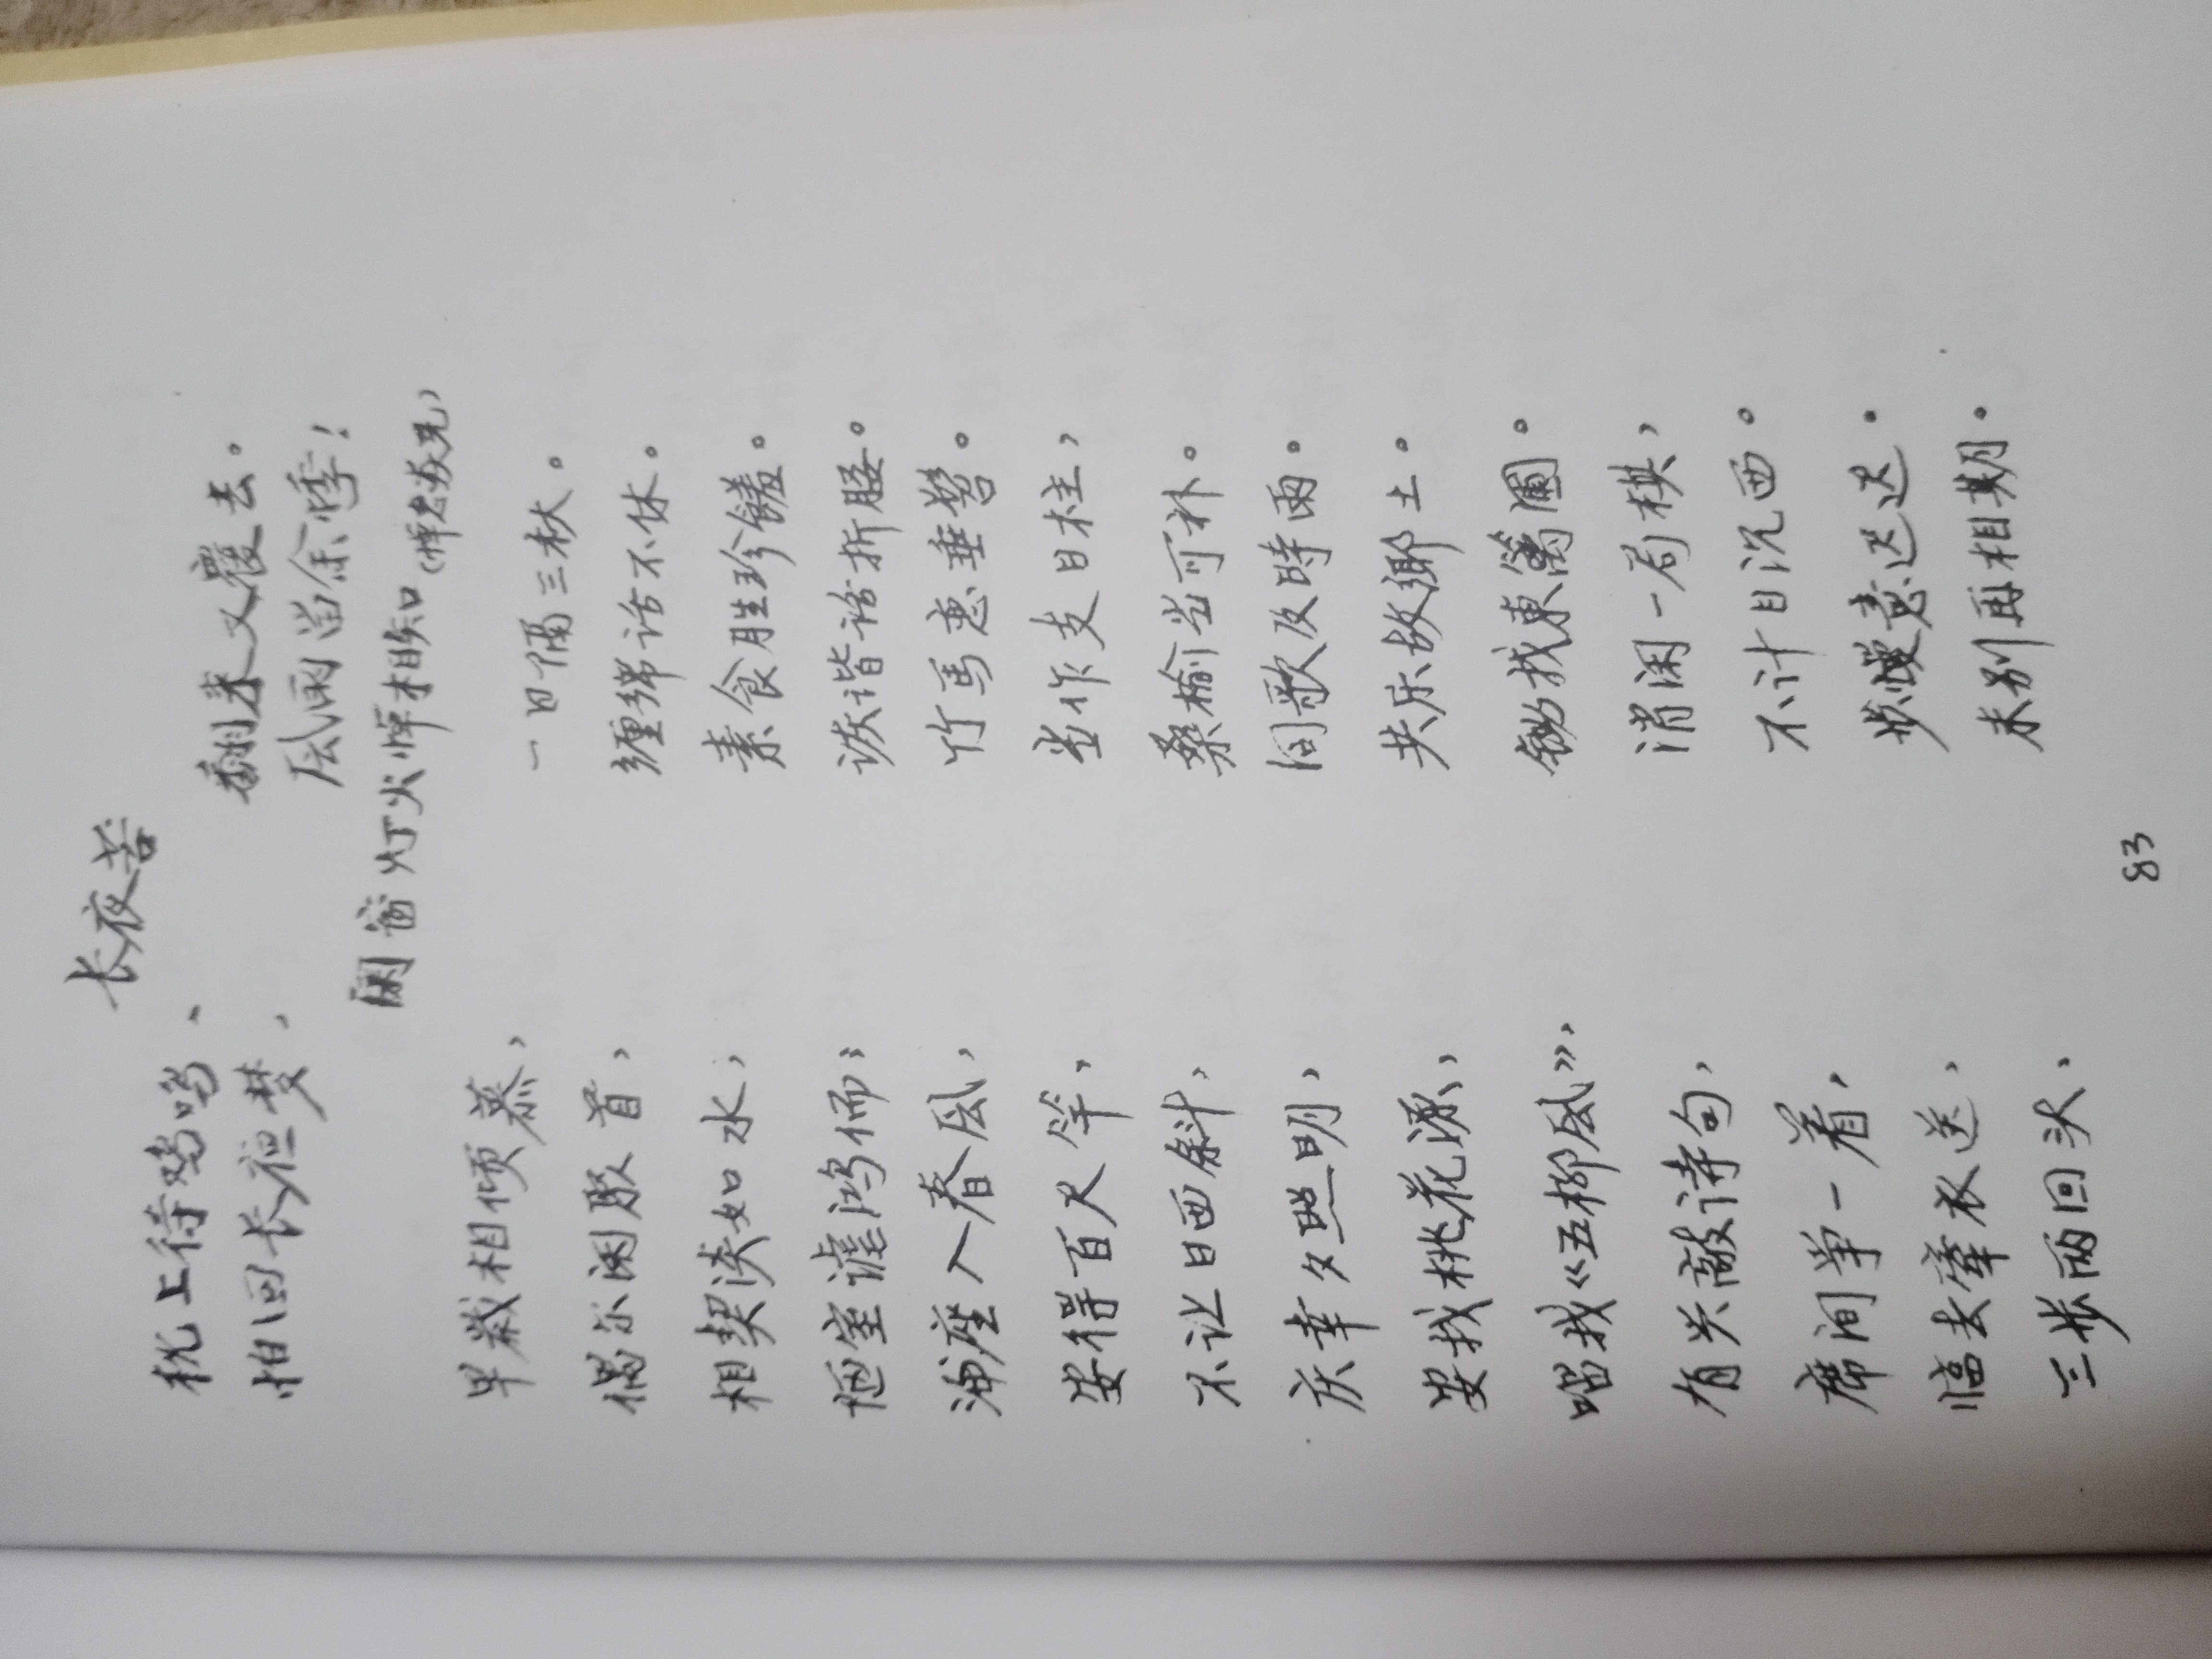 长夜苦
枕上待鸡鸣、翻来又覆去。
怕回长征梦，风雨留余悸！
闲窗灯火悼相知（悼君焱兄）
早岁相倾慕，一日隔三秋。
偶尔闲聚首，缠绵话不休。
相契淡如水，素食胜珍馐。
陋室谑鸿儒；诙谐话折腰。
满座入春风，竹马惠垂髫。
安得百尺竿，当作支日柱，
不让日西斜，桑榆当可补。
庆幸夕照明，间歌及時雨。
要我桃花源，共乐故鄉土。
唱我《五柳风》，锄我東篱圃。
有兴敲诗句，消闲一局棋，
席间争一着，不计日沉西。
临去牵衣送，步嫒意迟迟。
三步两回头，未别再相期。
83